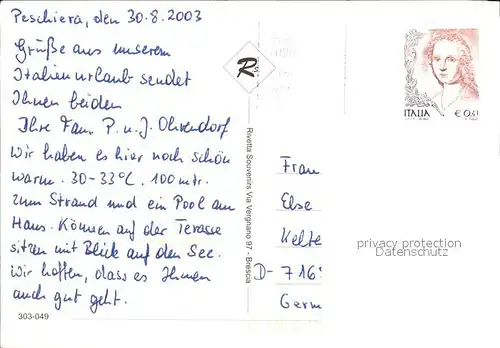 Peschiera, den 30.8.2003
Grüße aus unserem
Italienurlaub sendet
Ihnen beiden
Ihre Fam. P. u. J. Ohrendorf
Wir haben es hier noch schön
warm. 30-33°C. 100 mtr.
zum Strand und ein Pool am
Haus. Können auf der Terasse
sitzen mit Blick auf den See.
Wir hoffen, dass es Ihnen
auch gut geht.
303-049
R
Rivetta Souvenirs Via Vergnano 97 - Brescia
ITALIA € 0,41
Frau
Else
Kelte
D- 716
Germ
privacy protection
Datenschutz